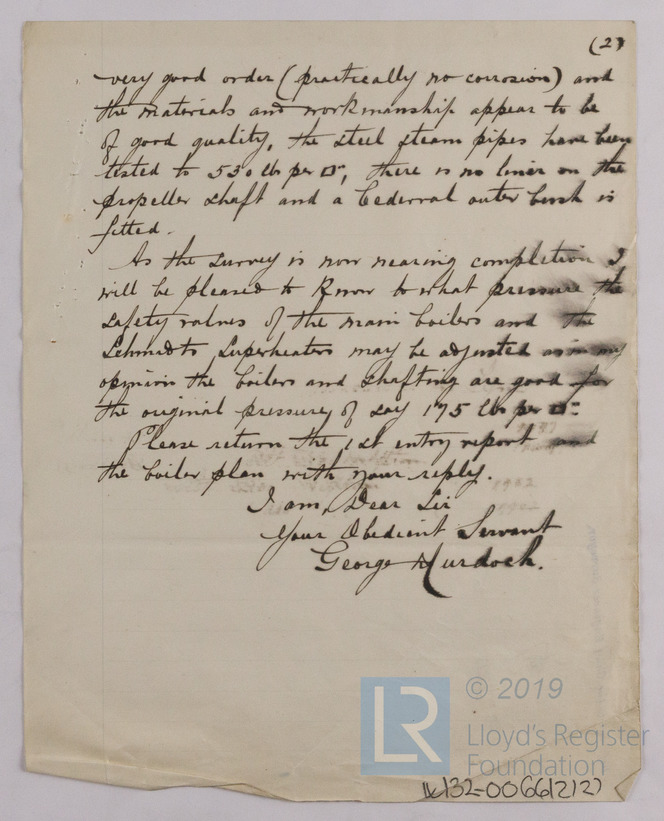 (2)
very good order (practically no corrosion) and
the materials and workmanship appear to be
of good quality, the steel steam pipes have been
tested to 550 lb per □", there is no liner on the
propeller shaft and a Cederval outer bush is
fitted.
As the survey is now nearing completion I
will be pleased to know to what pressure the
safety valves of the main boilers and the
Schmidts Superheaters may be adjusted as in my
opinion the boilers and shafting are good for
the original pressure, of say 175 lbs per □".
Please return the 1st entry report and
the boiler plan with your reply.
I am, Dear Sir
Your Obedient Servant
George Murdoch.
© 2019
LR
Lloyd's Register
Foundation
W132-0066(2/2)